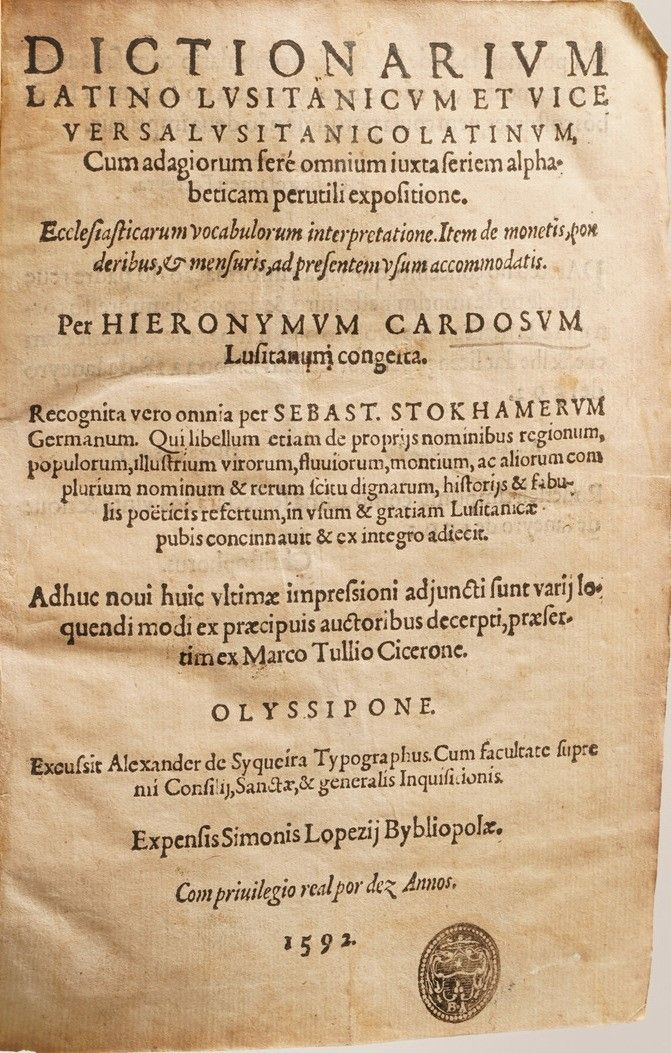 DICTIONARIVM
LATINO LVSITANICVM ET VICE
VERSA LVSITANICOLATINVM,
Cum adagiorum ferè omnium iuxta ſeriem alpha-
beticam perutili expoſitione.
Eccleſiaſticarum vocabulorum interpretatione. Item de monetis, pon
deribus, & menſuris, ad preſentem vſum accommodatis.
Per HIERONYMVM CARDOSVM
Luſitanum congeſta.
Recognita vero omnia per SEBAST. STOKHAMERVM
Germanum. Qui libellum etiam de proprijs nominibus regionum,
populorum, illuſtrium virorum, fluuiorum, montium, ac aliorum com
plurium nominum & rerum ſcitu dignarum, hiſtorijs & fabu-
lis poëticis refertum, in vſum & gratiam Luſitanicæ
pubis concinnauit & ex integro adiecit.
Adhuc noui huic vltimæ impreſsioni adjuncti ſunt varij lo-
quendi modi ex præcipuis auctoribus decerpti, præſer-
tim ex Marco Tullio Cicerone.
OLYSSIPONE.
Excuſsit Alexander de Syqueira Typographus. Cum facultate ſupre
mi Conſilij, Sanctæ, & generalis Inquiſitionis.
Expenſis Simonis Lopezij Bybliopolæ.
Com priuilegio real por dez Annos.
1592.
B.A